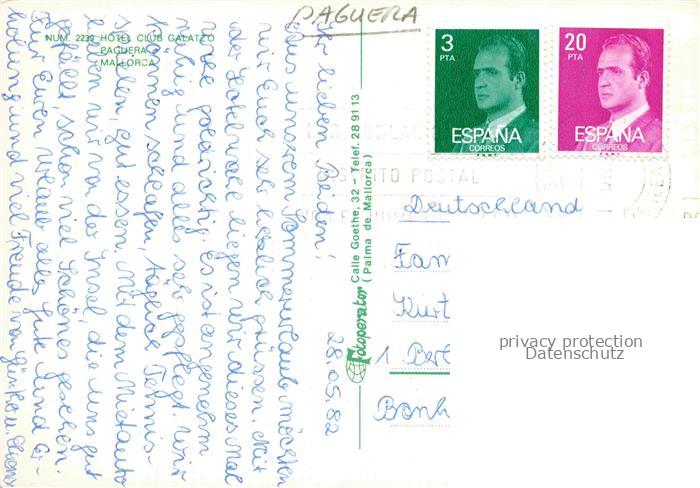 PAGUERA
NUM. 2239 HOTEL CLUB GALATZO
PAGUERA
MALLORCA
28.05.82
Ihr lieben Beiden!
Aus unserem Sommerurlaub möchten
wir Euch sehr herzlich grüssen. Mit
der Hotelwahl liegen wir dieses Mal
goldrichtig. Es ist angenehm
ruhig und alles sehr gepflegt. Wir
können schlafen, täglich Tennis
spielen, gut essen. Mit dem Mietauto
wir von der Insel, die uns gut
gefällt, schon viel Schönes gesehen.
Für Euren Urlaub alles Gute und Er-
holung und viel Freude
Fotoperator Calle Goethe, 32 - Telef. 28 91 13
( Palma de Mallorca )
3
PTA
ESPAÑA
CORREOS
F.N.M.T.
20
PTA
ESPAÑA
CORREOS
F.N.M.T.
DISTRITO POSTAL
Deutschland
Fam
Kurt
1 Berl
Bonh
privacy protection
Datenschutz